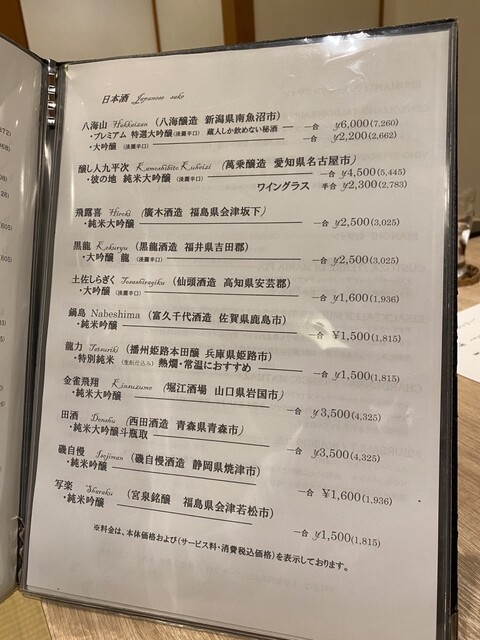 日本酒 Japanese sake
八海山 Hakkaisan (八海醸造 新潟県南魚沼市)
・プレミアム 特選大吟醸(淡麗辛口) 蔵人しか飲めない秘酒 一合 ¥6,000(7,260)
・大吟醸(淡麗辛口) 一合 ¥2,200(2,662)
醸し人九平次 Kamoshibito Kuheiji (萬乗醸造 愛知県名古屋市)
・彼の地 純米大吟醸(淡麗辛口) 一合 ¥4,500(5,445)
ワイングラス 半合 ¥2,300(2,783)
飛露喜 Hiroki (廣木酒造 福島県会津坂下)
・純米大吟醸 一合 ¥2,500(3,025)
黒龍 Kokuryu (黒龍酒造 福井県吉田郡)
・大吟醸 龍(淡麗辛口) 一合 ¥2,500(3,025)
土佐しらぎく Tosashiragiku (仙頭酒造 高知県安芸郡)
・大吟醸(淡麗辛口) 一合 ¥1,600(1,936)
鍋島 Nabeshima (富久千代酒造 佐賀県鹿島市)
・純米吟醸 一合 ¥1,500(1,815)
龍力 Tatsuriki (播州姫路本田醸 兵庫県姫路市)
・特別純米 (生酛仕込み) 熱燗・常温におすすめ 一合 ¥1,500(1,815)
金雀飛翔 Kinsuzume (堀江酒場 山口県岩国市)
・純米大吟醸 一合 ¥3,500(4,325)
田酒 Denshu (西田酒造 青森県青森市)
・純米大吟醸斗瓶取 一合 ¥3,500(4,325)
磯自慢 Isojiman (磯自慢酒造 静岡県焼津市)
・純米吟醸 一合 ¥1,600(1,936)
写楽 Sharaku (宮泉銘醸 福島県会津若松市)
・純米吟醸 一合 ¥1,500(1,815)
※料金は、本体価格および(サービス料・消費税込価格)を表示しております。